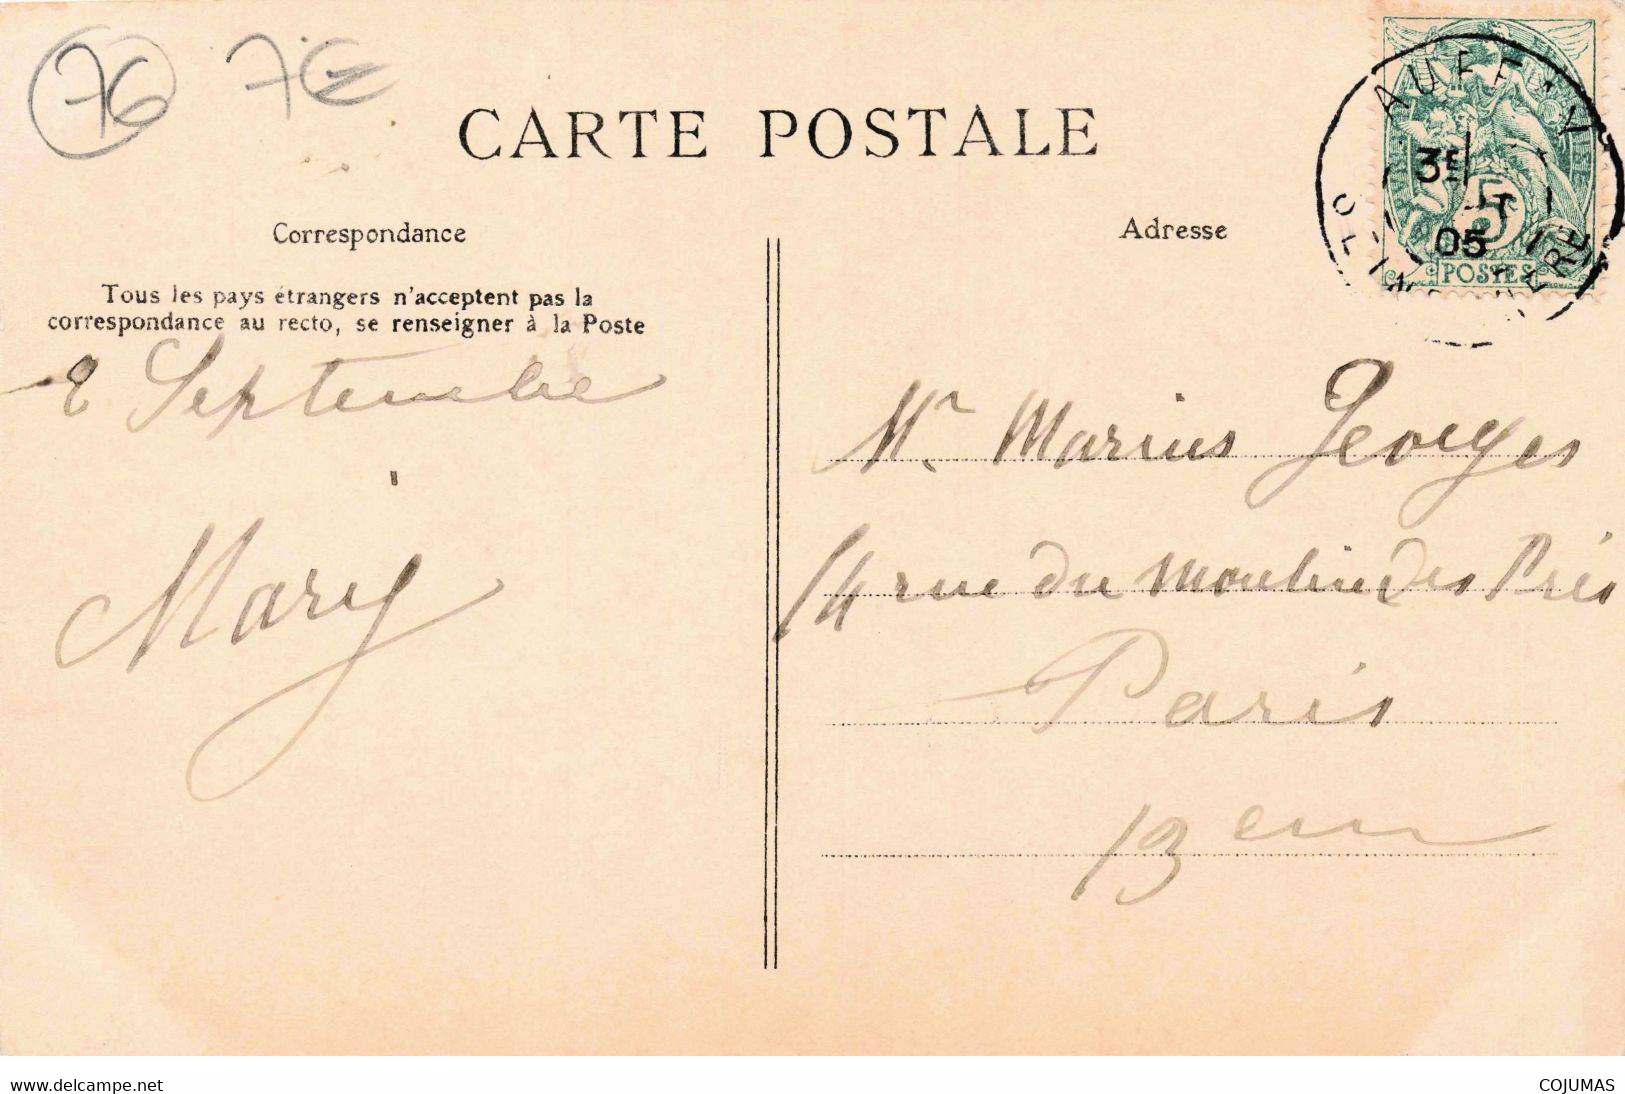 76 7€
CARTE POSTALE
Correspondance
Tous les pays étrangers n'acceptent pas la
correspondance au recto, se renseigner à la Poste
2 Septembre
Mary
Adresse
AUFFAY
3E
05
5
POSTES
Mr. Marius Georges
14 rue du Moulin des Prés
Paris
13em
www.delcampe.net
COJUMAS